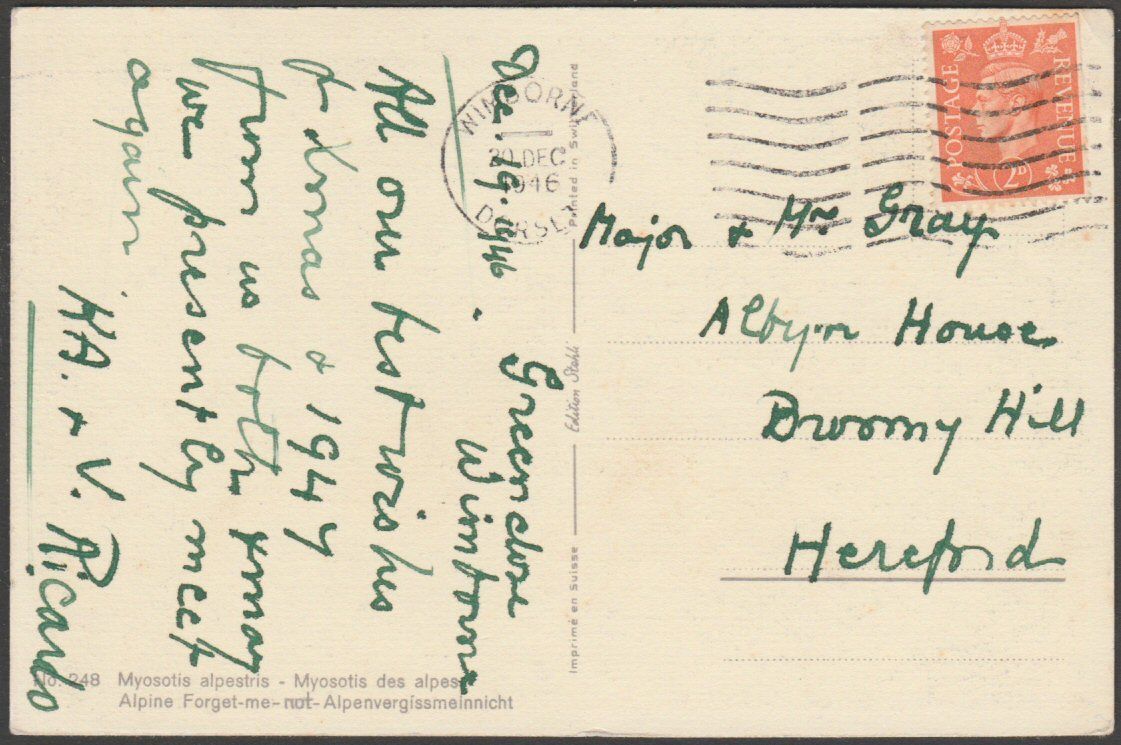 Dec. 19. 1946 - Greenclose
Wimborne
All our best wishes
for Xmas & 1947
from us both & may
we presently meet
again
K.A. + V. Ricardo
WIMBORNE
20 DEC
1946
DORSET
POSTAGE
REVENUE
2D
Major & Mrs Gray
Albyn House
Broomy Hill
Hereford
Imprimé en Suisse
Edition Stehli
Printed in Switzerland
No. 248 Myosotis alpestris - Myosotis des alpes
Alpine Forget-me-not - Alpenvergissmeinnicht